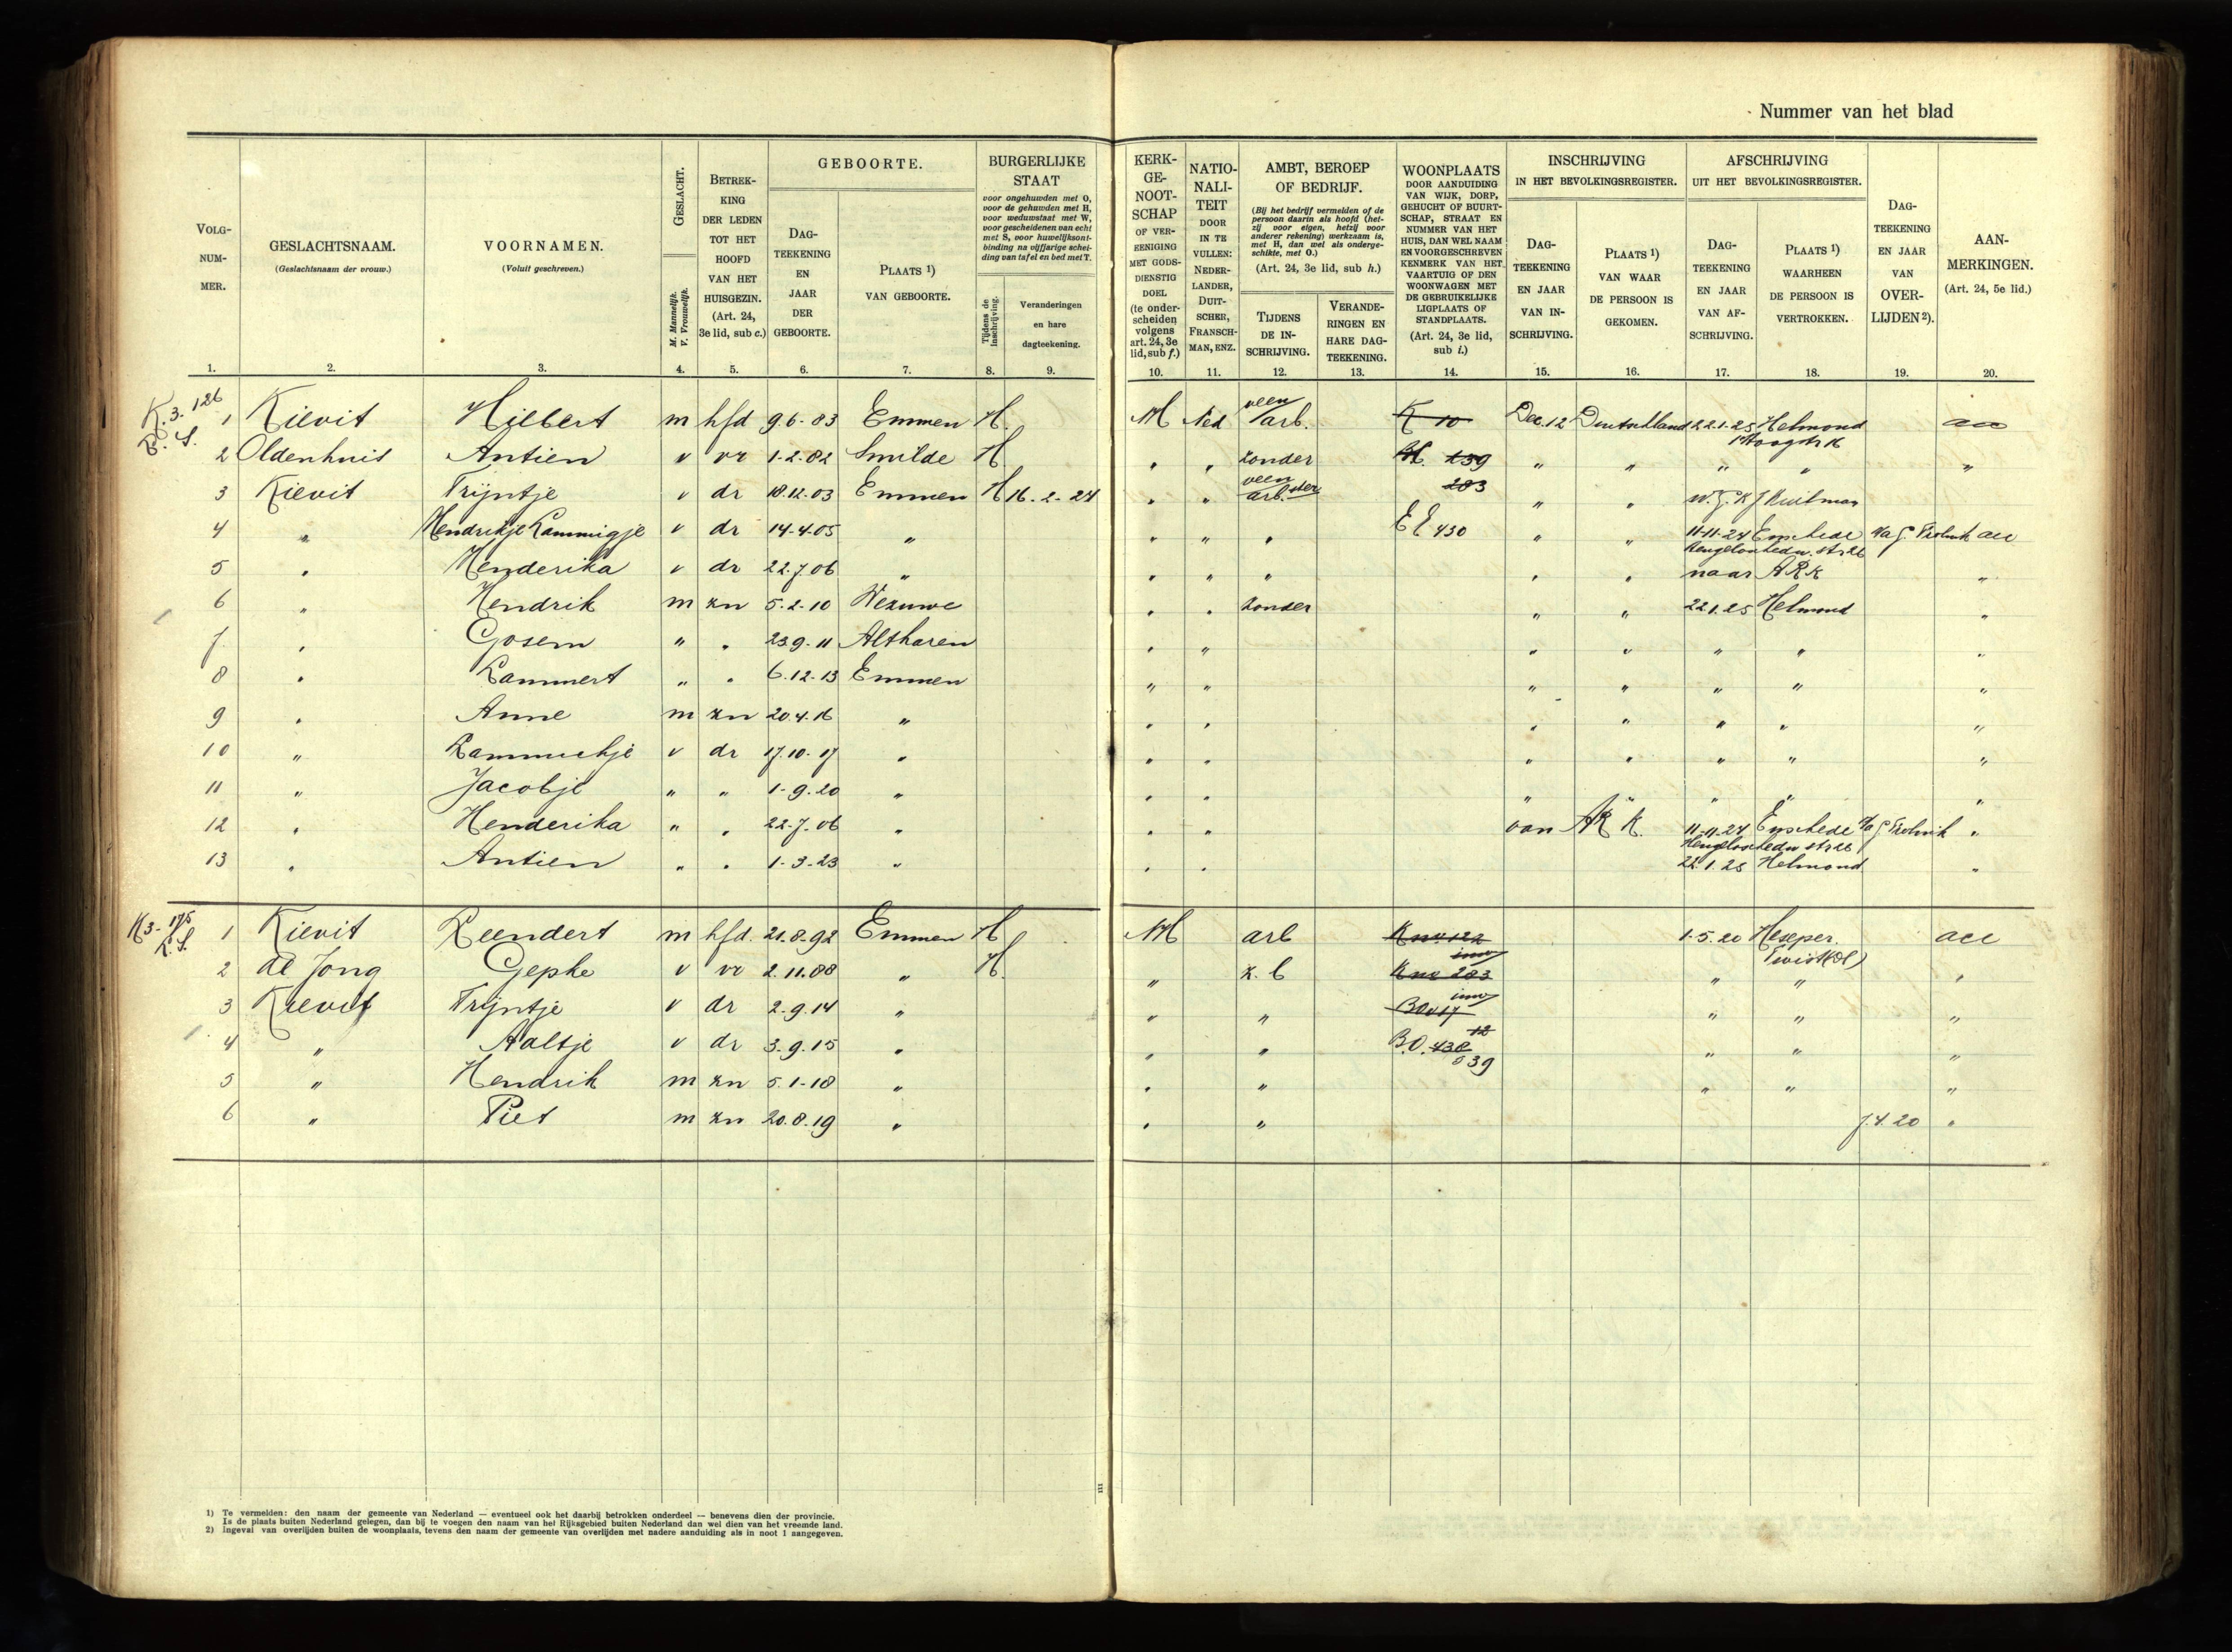 Nummer van het blad
VOLG-NUM-MER. GESLACHTSNAAM. (Geslachtsnaam der vrouw.) VOORNAMEN. (Voluit geschreven.) GESLACHT. M. Mannelijk. V. Vrouwelijk. BETREKKING DER LEDEN TOT HET HOOFD VAN HET HUISGEZIN. (Art. 24, 3e lid, sub c.)
GEBOORTE. DAG-TEEKENING EN JAAR DER GEBOORTE. PLAATS 1) VAN GEBOORTE.
BURGERLIJKE STAAT
voor ongehuwden met O,
voor de gehuwden met H,
voor weduwstaat met W,
voor gescheidenen van echt
met S, voor huwelijksont-
binding na vijfjarige schei-
ding van tafel en bed met T.
Tijdens de inschrijving. Veranderingen en hare dagteekening.
KERK-GE-NOOT-SCHAP OF VER-EENIGING MET GODS-DIENSTIG DOEL (te onder-scheiden volgens art. 24, 3e lid, sub f.)
NATIO-NALI-TEIT DOOR IN TE VULLEN: NEDER-LANDER, DUIT-SCHER, FRANSCH-MAN, ENZ.
AMBT, BEROEP OF BEDRIJF.
(Bij het bedrijf vermelden of de
persoon daarin als hoofd (het-
zij voor eigen, hetzij voor
anderer rekening) werkzaam is,
met H, dan wel als onderge-
schikte, met O.)
(Art. 24, 3e lid, sub h.)
TIJDENS DE IN-SCHRIJVING. VERANDE-RINGEN EN HARE DAG-TEEKENING.
WOONPLAATS
DOOR AANDUIDING
VAN WIJK, DORP,
GEHUCHT OF BUURT-
SCHAP, STRAAT EN
NUMMER VAN HET
HUIS, DAN WEL NAAM
EN VOORGESCHREVEN
KENMERK VAN HET
VAARTUIG OF DEN
WOONWAGEN MET
DE GEBRUIKELIJKE
LIGPLAATS OF
STANDPLAATS.
(Art. 24, 3e lid, sub i.)
INSCHRIJVING IN HET BEVOLKINGSREGISTER. DAG-TEEKENING EN JAAR VAN IN-SCHRIJVING. PLAATS 1) VAN WAAR DE PERSOON IS GEKOMEN.
AFSCHRIJVING UIT HET BEVOLKINGSREGISTER. DAG-TEEKENING EN JAAR VAN AF-SCHRIJVING. PLAATS 1) WAARHEEN DE PERSOON IS VERTROKKEN.
DAG-TEEKENING EN JAAR VAN OVER-LIJDEN 2).
AAN-MERKINGEN. (Art. 24, 5e lid.)
1. 2. 3. 4. 5. 6. 7. 8. 9. 10. 11. 12. 13. 14. 15. 16. 17. 18. 19. 20.
K.3. 126
1 Kievit Hilbert m hfd 9.6-83 Emmen H. M Ned veen arb. K 10 Dec. 12 Deutschland 22.1.25 Helmond
2 Oldenhuis Antien v vr 1-2-82 Smilde H " " zonder 139 " " " " "
283
3 Kievit Trijntje v dr 18.12.03 Emmen H 16-2-24 " " veen arb.ster " "
4 " Hendrikje Lammigje v dr 14-4-05 " " " " EE 430 " " 11-11-24 Enschede acc
5 " Henderika v dr 22.7.06 " " " " " " naar ARK "
6 " Hendrik m zn 5-2-10 Wezuwe " " zonder " " 22.1.25 Helmond "
7 " Gosem " " 23.9.11 Altharen " " " " " " "
8 " Lammert " " 6.12-13 Emmen " " " " " " "
9 " Anne m zn 20.4.16 " " " " " " " "
10 " Lammechje v dr 17.10.17 " " " " " " " "
11 " Jacobje " " 1-9.20 " " " " " " " "
12 " Henderika " " 22-7.06 " " " van ARK. 11-11-24 Enschede "
13 " Antien " " 1-3-23 " " " 22.1.25 Helmond "
K3-175
L.S.
1 Kievit Leendert m hfd. 21-8-92 Emmen H M arb K nw 122 1.5.20 Heseper acc
Twist (Dl)
2 de Jong Gepke v vr 2.11.88 " H. " z.b K nw 283 " " "
3 Kievit Trijntje v dr 2-9.14 " " " BO v 17 " " "
4 " Aaltje v dr 3.9.15 " " " B.O. 438 12 " " "
539
5 " Hendrik m zn 5.1-18 " " " " " "
6 " Piet m zn 20.8.19 " " " 7.4.20 "
1) Te vermelden: den naam der gemeente van Nederland — eventueel ook het daarbij betrokken onderdeel — benevens dien der provincie.
Is de plaats buiten Nederland gelegen, dan bij te voegen den naam van het Rijksgebied buiten Nederland dan wel dien van het vreemde land.
2) Ingeval van overlijden buiten de woonplaats, tevens den naam der gemeente van overlijden met nadere aanduiding als in noot 1 aangegeven.